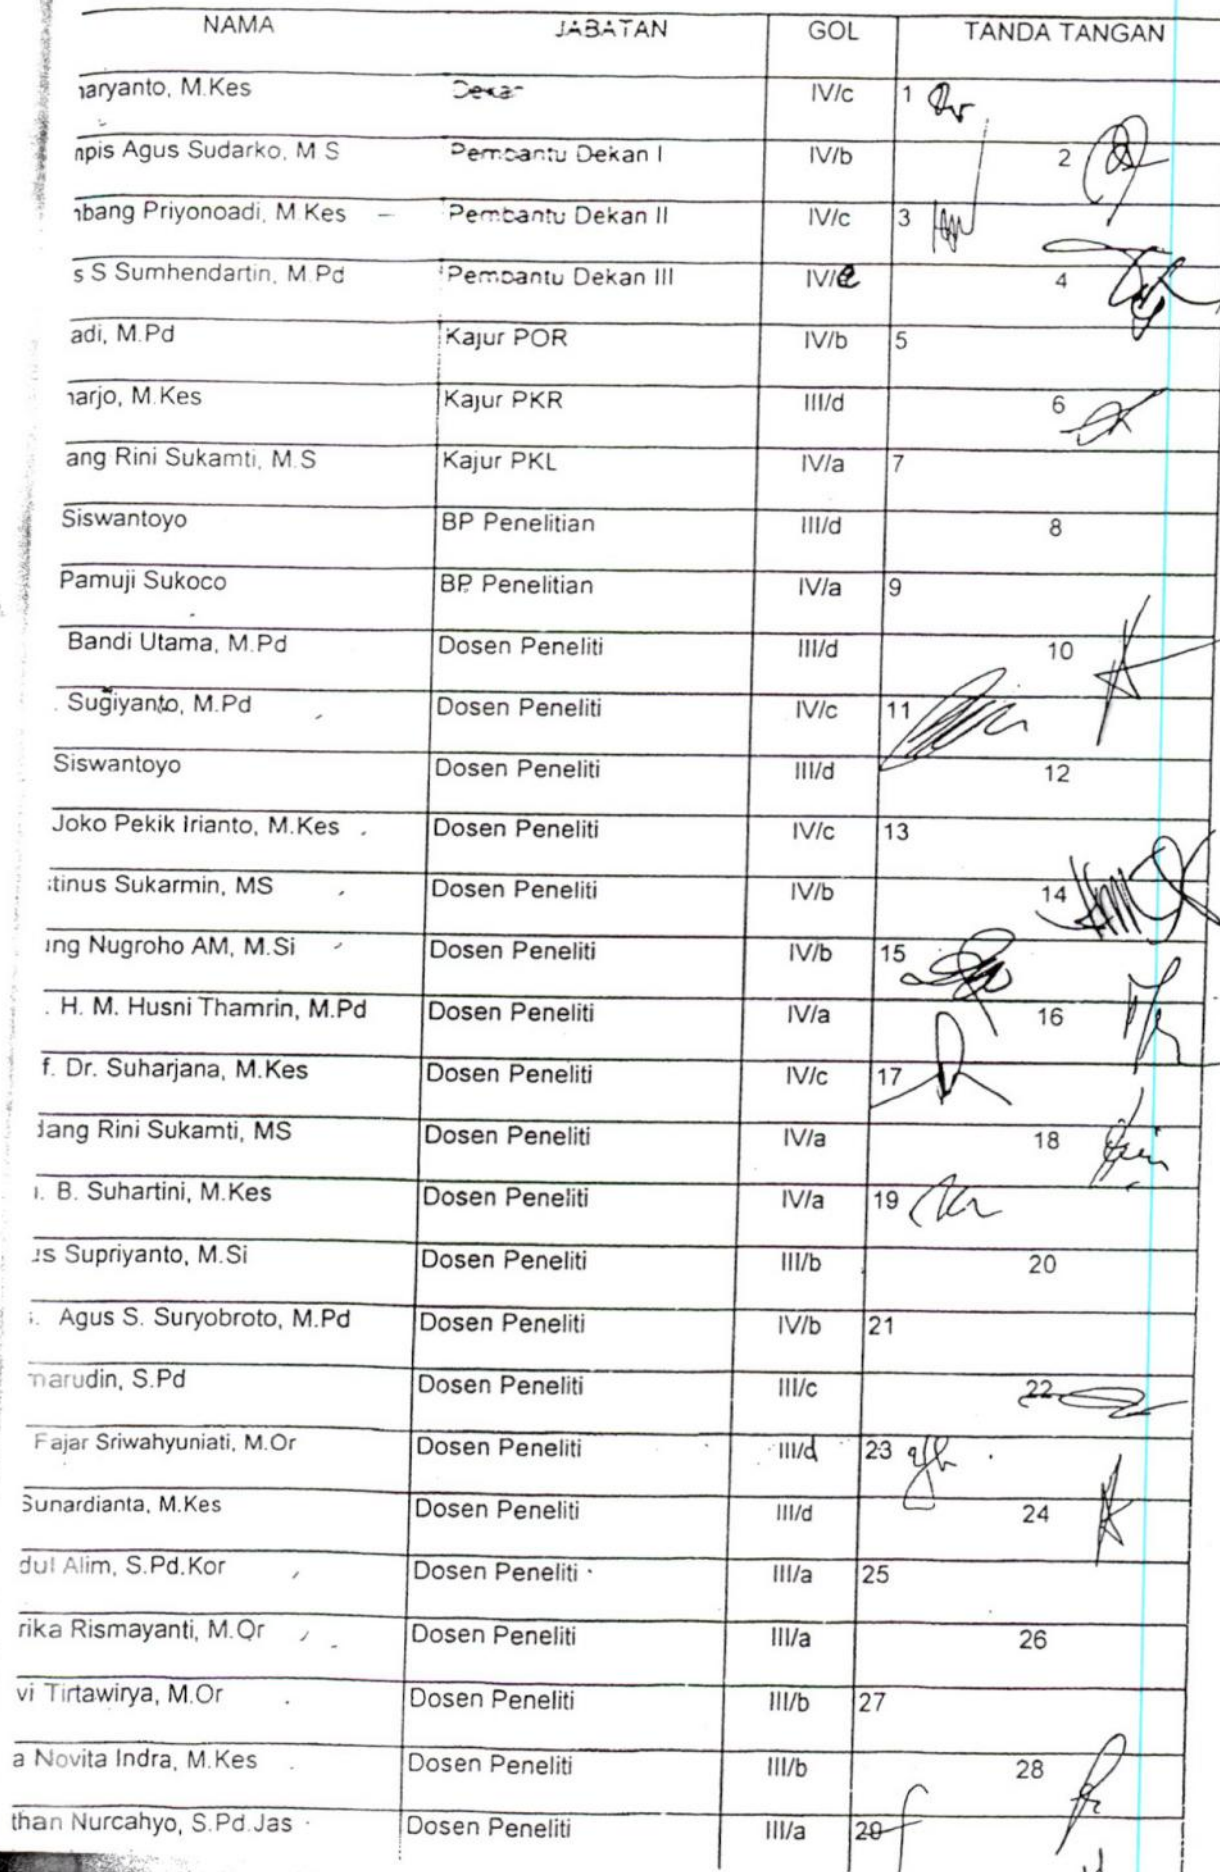 NAMA JABATAN GOL TANDA TANGAN
aryanto, M.Kes Dekan IV/c 1
npis Agus Sudarko, M S Pembantu Dekan I IV/b 2
nbang Priyonoadi, M.Kes Pembantu Dekan II IV/c 3
s S Sumhendartin, M.Pd Pembantu Dekan III IV/e 4
adi, M.Pd Kajur POR IV/b 5
harjo, M.Kes Kajur PKR III/d 6
ang Rini Sukamti, M.S Kajur PKL IV/a 7
Siswantoyo BP Penelitian III/d 8
Pamuji Sukoco BP Penelitian IV/a 9
Bandi Utama, M.Pd Dosen Peneliti III/d 10
. Sugiyanto, M.Pd Dosen Peneliti IV/c 11
Siswantoyo Dosen Peneliti III/d 12
Joko Pekik Irianto, M.Kes Dosen Peneliti IV/c 13
tinus Sukarmin, MS Dosen Peneliti IV/b 14
ing Nugroho AM, M.Si Dosen Peneliti IV/b 15
. H. M. Husni Thamrin, M.Pd Dosen Peneliti IV/a 16
f. Dr. Suharjana, M.Kes Dosen Peneliti IV/c 17
dang Rini Sukamti, MS Dosen Peneliti IV/a 18
. B. Suhartini, M.Kes Dosen Peneliti IV/a 19
us Supriyanto, M.Si Dosen Peneliti III/b 20
. Agus S. Suryobroto, M.Pd Dosen Peneliti IV/b 21
marudin, S.Pd Dosen Peneliti III/c 22
Fajar Sriwahyuniati, M.Or Dosen Peneliti III/d 23
Sunardianta, M.Kes Dosen Peneliti III/d 24
dul Alim, S.Pd.Kor Dosen Peneliti III/a 25
rika Rismayanti, M.Or Dosen Peneliti III/a 26
vi Tirtawirya, M.Or Dosen Peneliti III/b 27
a Novita Indra, M.Kes Dosen Peneliti III/b 28
than Nurcahyo, S.Pd.Jas Dosen Peneliti III/a 29